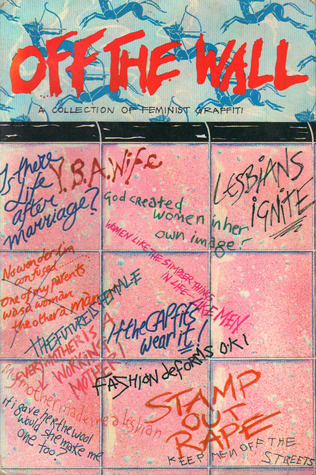 OFF THE WALL
A COLLECTION OF FEMINIST GRAFFITI
Is there
life
after
marriage?
Y.B.A. Wife
God created
women in her
own image!
LESBIANS
IGNITE
No wonder I'm
confused
one of my parents
was a woman
the other a man
WOMEN LIKE THE SIMPLER THINGS
IN LIFE LIKE MEN
THE FUTURE IS FEMALE
If the CAP fits
wear it!
EVERY MOTHER IS A
WORKING
MOTHER
FASHION deforms O.K!
My mother made me a lesbian
if i gave her the wool
would she make me
one too
STAMP
OUT
RAPE
KEEP MEN OFF THE
STREETS